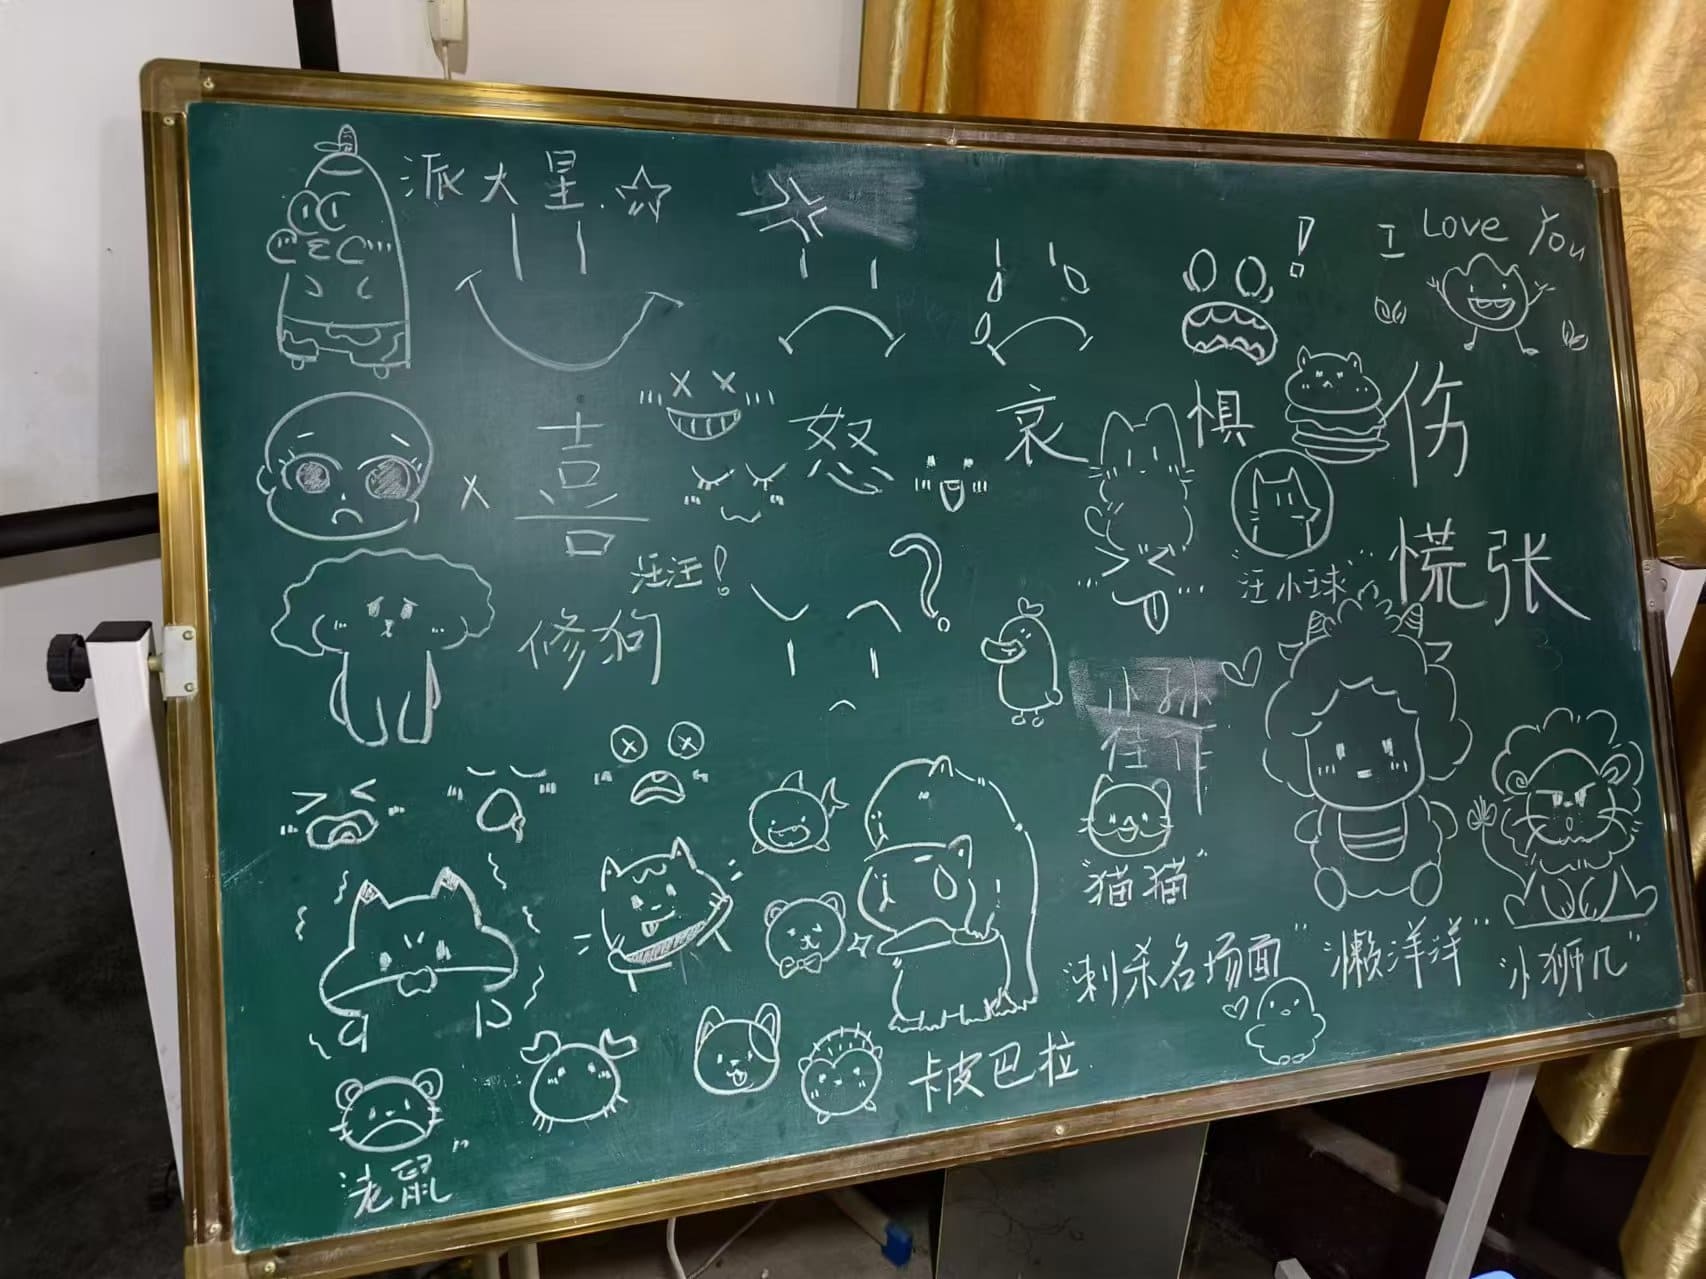 派大星
I Love You
喜
怒
哀
惧
伤
汪汪！
？
"汪小球"
慌张
修狗
"猫猫"
刺杀名场面
"懒洋洋"
"小狮几"
卡皮巴拉
老鼠"